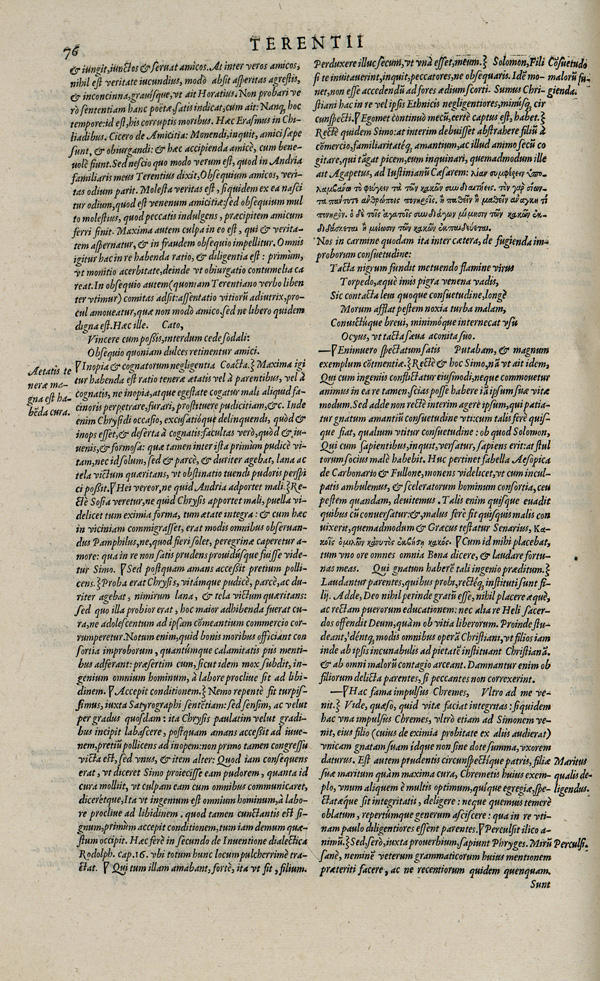 76
TERENTII
& iungit, iunctos & seruat amicos. At inter veros amicos,
nihil est veritate iucundius, modò absit asperitas agrestis,
& inconcinna, grauisque, vt ait Horatius. Non probari ve
rò sententiam hanc poëtæ, satis indicat, cum ait: Nanq, hoc
tempore: id est, his corruptis moribus. Hæc Erasmus in Chi-
liadibus. Cicero de Amicitia: Monendi, inquit, amici sæpe
sunt, & obiurgandi: & hæc accipienda amicè, cum bene-
uolè fiunt. Sed nescio quo modo verum est, quod in Andria
familiaris meus Terentius dixit, Obsequium amicos, veri-
tas odium parit. Molesta veritas est, siquidem ex ea nasci
tur odium, quod est venenum amicitiæ: sed obsequium mul
to molestius, quod peccatis indulgens, præcipitem amicum
ferri sinit. Maxima autem culpa in eo est, qui & verita-
tem aspernatur, & in fraudem obsequio impellitur. Omnis
igitur hac in re habenda ratio, & diligentia est: primum,
vt monitio acerbitate, deinde vt obiurgatio contumelia ca
reat. In obsequio autem (quoniam Terentiano verbo liben
ter vtimur) comitas adsit: assentatio vitiorũ adiutrix, pro-
cul amoueatur, quæ non modò amico, sed ne libero quidem
digna est. Hæc ille. Cato,
Vincere cum possis, interdum cede sodali:
Obsequio quoniam dulces retinentur amici.
Ætatis te
neræ ma-
gna est ha-
bẽda cura.
Inopia & cognatorum negligentia Coacta.} Maxima igi
tur habenda est ratio teneræ ætatis vel à parentibus, vel à
cognatis, ne inopia, atque egestate cogatur mali aliquid fa-
cinoris perpetrare, furari, prostituere pudicitiam, &c. Inde
enim Chrysidi occasio, excusatióque delinquendi, quòd &
inops esset, & deserta à cognatis: facultas verò, quòd & iu-
uenis, & formosa: quæ tamen inter ista primùm pudicè vi-
tam, nec id solum, sed & parcè, & duriter agebat, lana ac
tela victum quæritans, vt obstinatio tuendi pudoris perspi
ci possit. Hei vereor, ne quid Andria adportet mali.} Re-
ctè Sosia veretur, ne quid Chrysis apportet mali, puella vi-
delicet tum eximia forma, tum ætate integra: & cum hæc
in viciniam commigrasset, erat modis omnibus obseruan-
dus Pamphilus, ne, quod fieri solet, peregrinæ caperetur a-
more: qua in re non satis prudens prouidúsque fuisse vide-
tur Simo. Sed postquam amans accessit pretium polli-
cens.} Proba erat Chrysis, vitámque pudicè, parcè, ac du-
riter agebat, nimirum lana, & tela victum quæritans:
sed quo illa probior erat, hoc maior adhibenda fuerat cu-
ra, ne adolescentum ad ipsam cõmeantium commercio cor-
rumperetur. Notum enim, quid bonis moribus officiant con
sortia improborum, quantúmque calamitatis piis menti-
bus adferant: præsertim cum, sicut idem mox subdit, in-
genium omnium hominum, à labore procliue sit ad libi-
dinem. Accepit conditionem.} Nemo repentè fit turpis-
simus, iuxta Satyrographi sentẽtiam: sed sensim, ac velut
per gradus quosdam: ita Chrysis paulatim velut gradi-
bus incipit labascere, postquam amans accessit ad iuue-
nem, pretiũ pollicens ad inopem: non primo tamen congressu
victa est, sed vnus, & item alter: Quod iam consequens
erat, vt diceret Simo proiecisse eam pudorem, quanta id
cura molliit, vt culpam eam cum omnibus communicaret,
diceretque, Ita vt ingenium est omnium hominum, à labo-
re procliue ad libidinem. quod tamen cunctantis est si-
gnum, primùm accepit conditionem, tum iam demum quæ-
stum occipit. Hæc ferè in secundo de Inuentione dialectica
Rodolph. cap. 16. vbi totum hunc locum pulcherrimè tra-
ctat. Qui tum illam amabant, fortè, ita vt fit, filium.
Perduxere illuc secum, vt vnà esset, meum.} Solomon, Fili
si te inuitauerint, inquit, peccatores, ne obsequaris. Idẽ mo-
net, non esse accedendũ ad fores ædium scorti. Sumus Chri-
stiani hac in re vel ipsis Ethnicis negligentiores, minúsq, cir
cunspecti. Egomet continuò mecũ, certè captus est, habet.}
Cõsuetudo
malorũ fu-
gienda.
Rectè quidem Simo: at interim debuisset abstrahere filiũ à
cõmercio, familiaritatéq, amantium, ac illud animo secũ co
gitare, qui tãgat picem, eum inquinari, quemadmodum ille
ait Agapetus, ad Iustinianũ Cæsarem:
Nos in carmine quodam ita inter cætera, de fugienda im-
proborum consuetudine:
Tacta nigrum fundit metuendo flamine virus
Torpedo, æquè imis pigra venena vadis,
Sic contacta leui quoque consuetudine, longè
Morum afflat pestem noxia turba malam,
Conuictúque breui, minimóque internecat vsu
Ocyus, vt tacta sæua aconita suo.
—Enimuero spectatum satis Putabam, & magnum
exemplum cõtinentiæ.} Rectè & hoc Simo, nã vt ait idem,
Qui cum ingeniis conflictatur eiusmodi, neque commouetur
animus in ea re tamen. scias posse habere iã ipsum suæ vitæ
modum. Sed adde non rectè interim agere ipsum, qui patia-
tur gnatum amantiũ consuetudine vti: cum talis ferè quis-
que fiat, qualium vtitur consuetudine: ob quod Solomon,
Qui cum sapientibus, inquit, versatur, sapiens erit: at stul
torum socius male habebit. Huc pertinet fabella Æsopica
de Carbonario & Fullone, monens videlicet, vt cum incul-
patis ambulemus, & sceleratorum hominum consortia, ceu
pestem quandam, deuitemus. Talis enim quisque euadit
quibus cũ conuersatur: &, malus ferè fit quisquis malis con
uixerit, quemadmodum & Græcus testatur Senarius, Κα-
κοῖς ὁμιλῶν καυτὸς ἐκβήσῃ κακός. Cum id mihi placebat,
tum vno ore omnes omnia Bona dicere, & laudare fortu-
nas meas. Qui gnatum haberẽ tali ingenio præditum.}
Laudantur parentes, quibus probi, rectéq, instituti sunt fi-
lij. Adde, Deo nihil perinde gratũ esse, nihil placere æquè,
ac rectam puerorum educationem: nec alia re Heli sacer-
dos offendit Deum, quàm ob vitia liberorum. Proinde stu-
deant, dẽntq, modis omnibus operã Christiani, vt filios iam
inde ab ipsis incunabulis ad pietatẽ instituant Christianã,
& ab omni malorũ contagio arceant. Damnantur enim ob
filiorum delicta parentes, si peccantes non correxerint.
—Hac fama impulsus Chremes, Vltro ad me ve-
nit.} Vide, quæso, quid vitæ faciat integritas: siquidem
hac vna impulsus Chremes, vltrò etiam ad Simonem ve-
nit, eius filio (cuius de eximia probitate ex aliis audierat)
vnicam gnatam suam idque non sine dote summa, vxorem
daturus. Est autem prudentis circunspectíque patris, filiæ
suæ maritum quàm maxima cura, Chremetis huius exem-
plo, vnum aliquem è multis optimum, quíque egregiæ, spe-
ctatæque sit integritatis, deligere: neque quemuis temerè
oblatum, repertúmque generum asciscere: qua in re vti-
nam paulo diligentiores essent parentes. Perculsit ilico a-
nimũ.} Sed, serò, iuxta prouerbium, sapiunt Phryges. Mirũ
sanè, neminẽ veterum grammaticorum huius mentionem
præteriti facere, ac ne recentiorum quidem quenquam.
Maritus
qualis de-
ligendus.
Perculsi.
Sunt